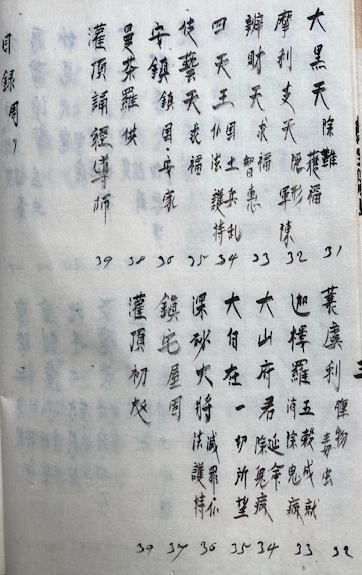 大黑天 除難 獲福 31
摩利支天 隠形 軍陳 32
辨財天 求福 智恵 33
四天王 国土兵乱 仏法護持 34
伎藝天 求福 35
安鎮 鎮国・安家 36
曼荼羅供 38
灌頂誦經導師 39
目録周リ
蘘虞利 怪物 毒虫 32
迦樓羅 五穀成就 消除鬼病 33
大山府君 延命 除鬼病 34
大自在 一切所望 35
深砂大将 滅罪・仏法護持 36
鎮宅屋固 37
灌頂初夜 39